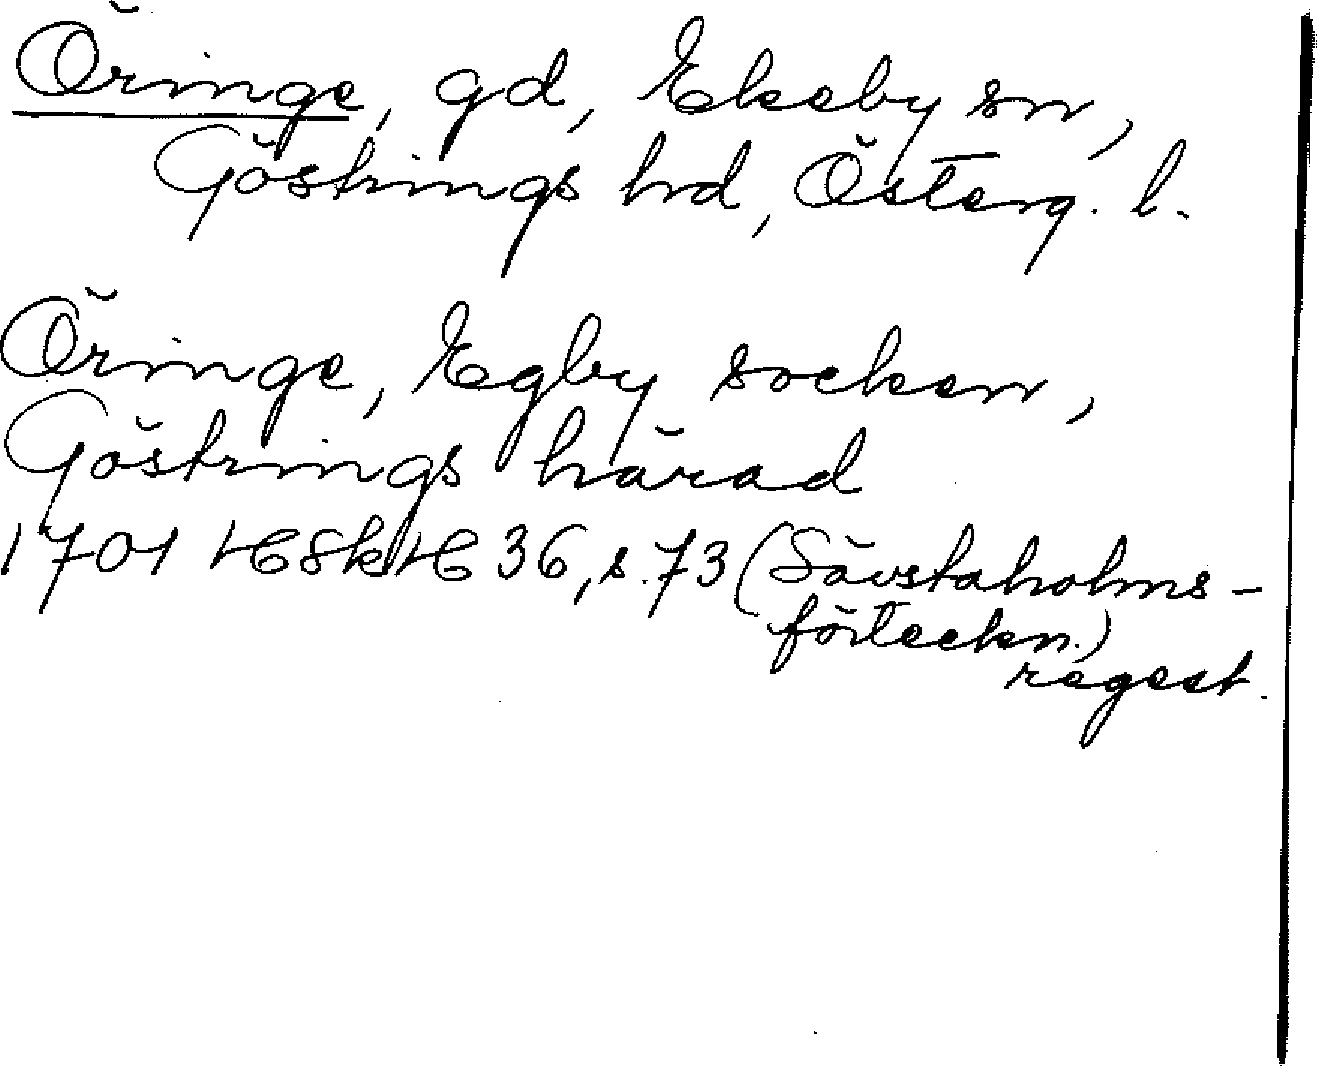 Öringe, gd, Ekeby sn,
Göstrings hd, Österg. l.
Öringe, Egby socken,
Göstrings härad
1701 HSkH 36, s. 73 (Sävstaholms-
förteckn.)
regest.